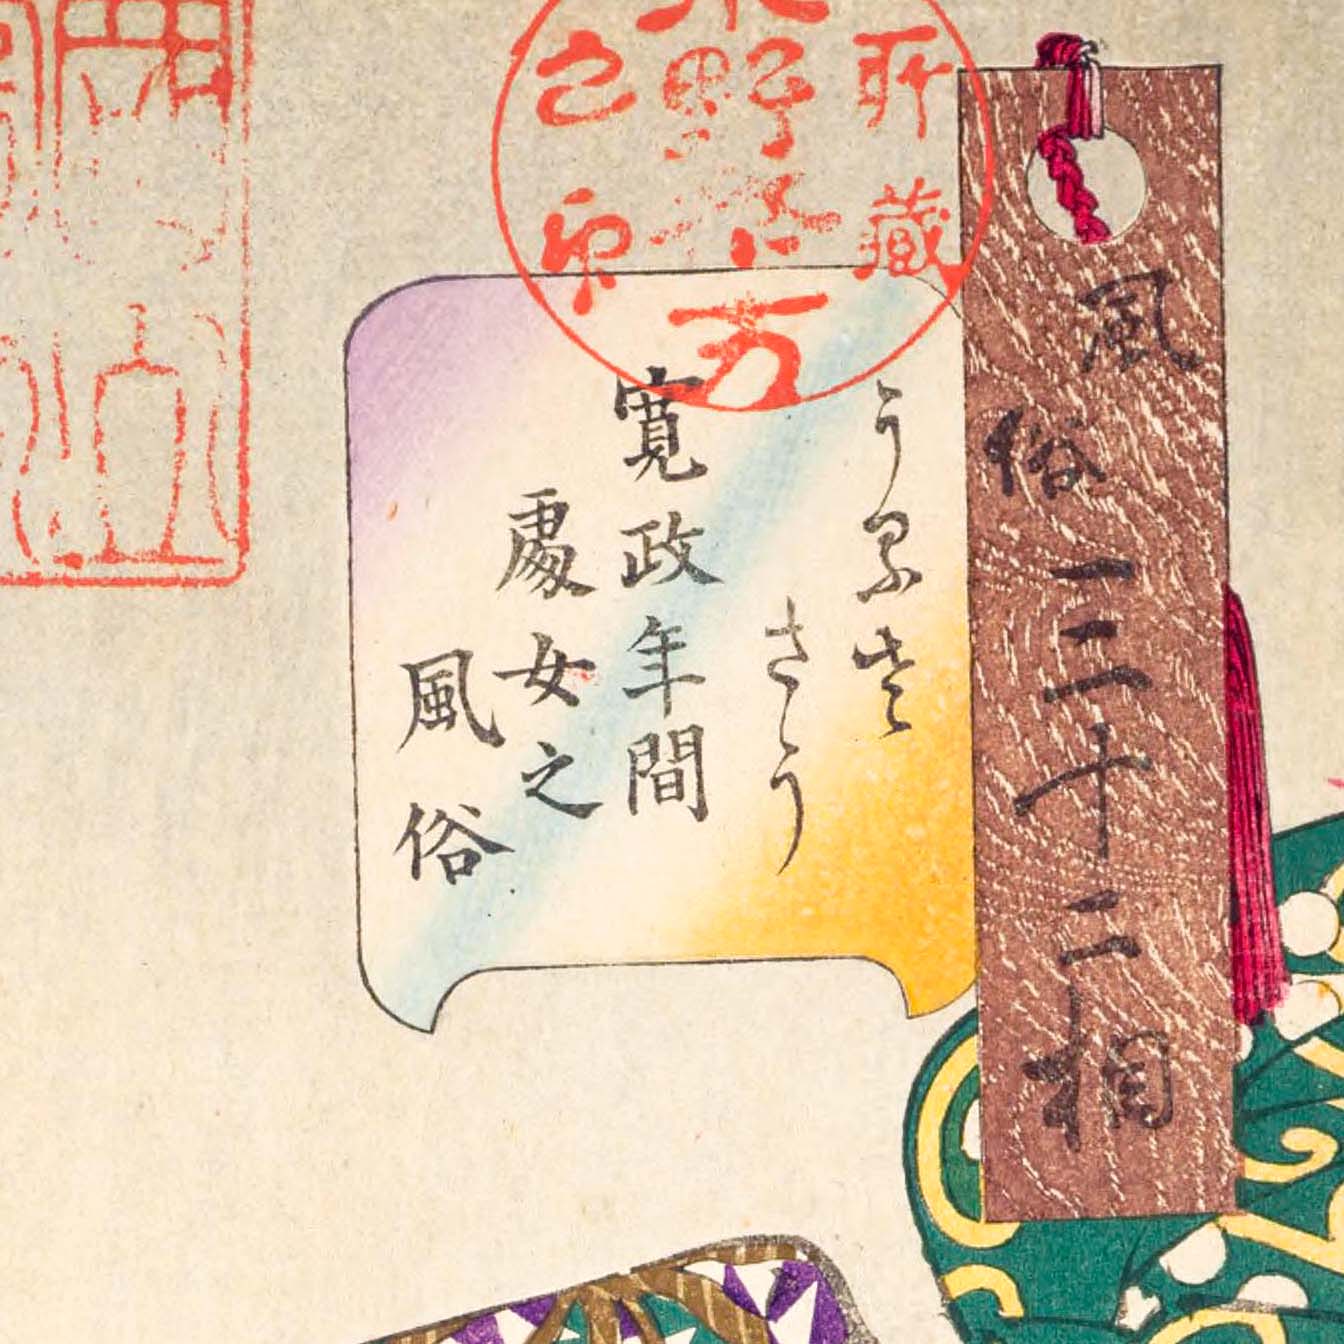 風俗三十二相
うるささう
寛政年間
處女之
風俗
所藏
万
印